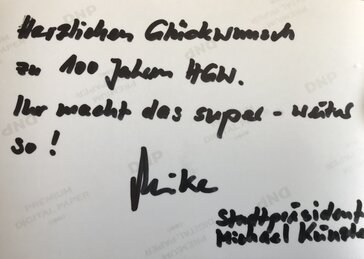 Herzlichen Glückwunsch
zu 100 Jahren HGW.
Ihr macht das super - weiter
so!
Stadtpräsident
Michael Künzle
DNP
PREMIUM
DIGITAL PAPER